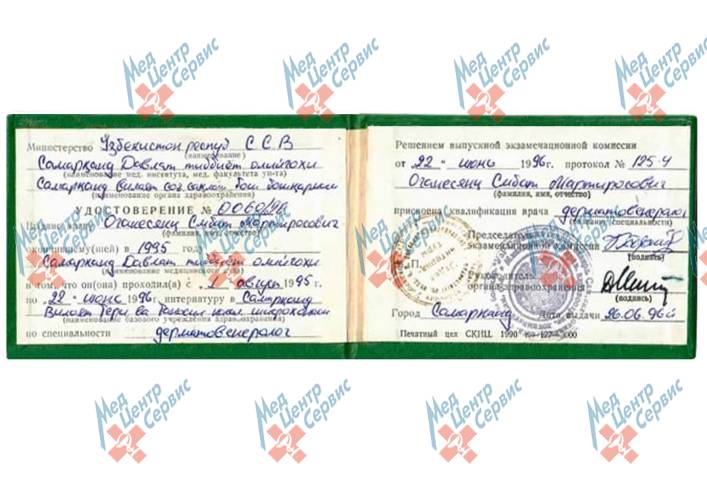 Мед Центр Сервис
Министерство Узбекистон респуб С С В
(наименование)
Самарканд Давлат тиббиёт олийгохи
(наименование мед. института, мед. факультета ун-та)
Самарканд Вилоят соғ. саклаш Бош бошкармаси
(наименование органа здравоохранения)
УДОСТОВЕРЕНИЕ №
Выдано врачу Оганесянц Смбат Мартиросович
(фамилия, имя, отчество)
окончившему(шей) в 1995 году
Самарканд Давлат тиббиёт олийгохи
(наименование медицинского
в том, что он(она) проходил(а) с август 1995 г.
по 22 - июнь 1996 г. интернатуру в Самарканд
Вилоят Тери ва касал
(наименование базового учреждения здравоохранения)
по специальности дерматовенеролог
Решением выпускной экзаменационной комиссии
от 22 - июнь 1996 г. протокол № 125-4
Оганесянц Смбат Мартиросович
(фамилия, имя, отчество)
присвоена квалификация врача дерматовенеролог
(название специальности)
Председатель
экзаменационной комиссии
(подпись)
М.П.
Руководитель
органа здравоохранения
(подпись)
Город Самарканд Дата выдачи 26.06.96й
Печатный цех СКНЦ. 1990